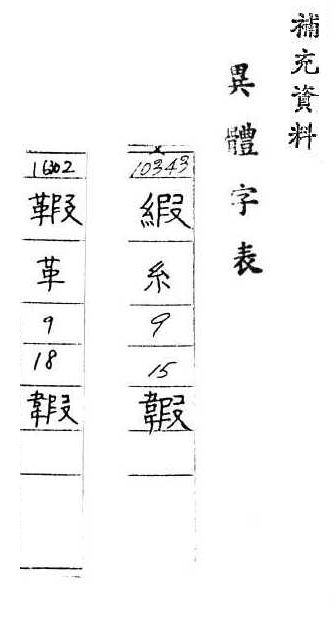 補充資料
異體字表
10343
緞
糸
9
15
韗
16302
鞎
革
9
18
韗